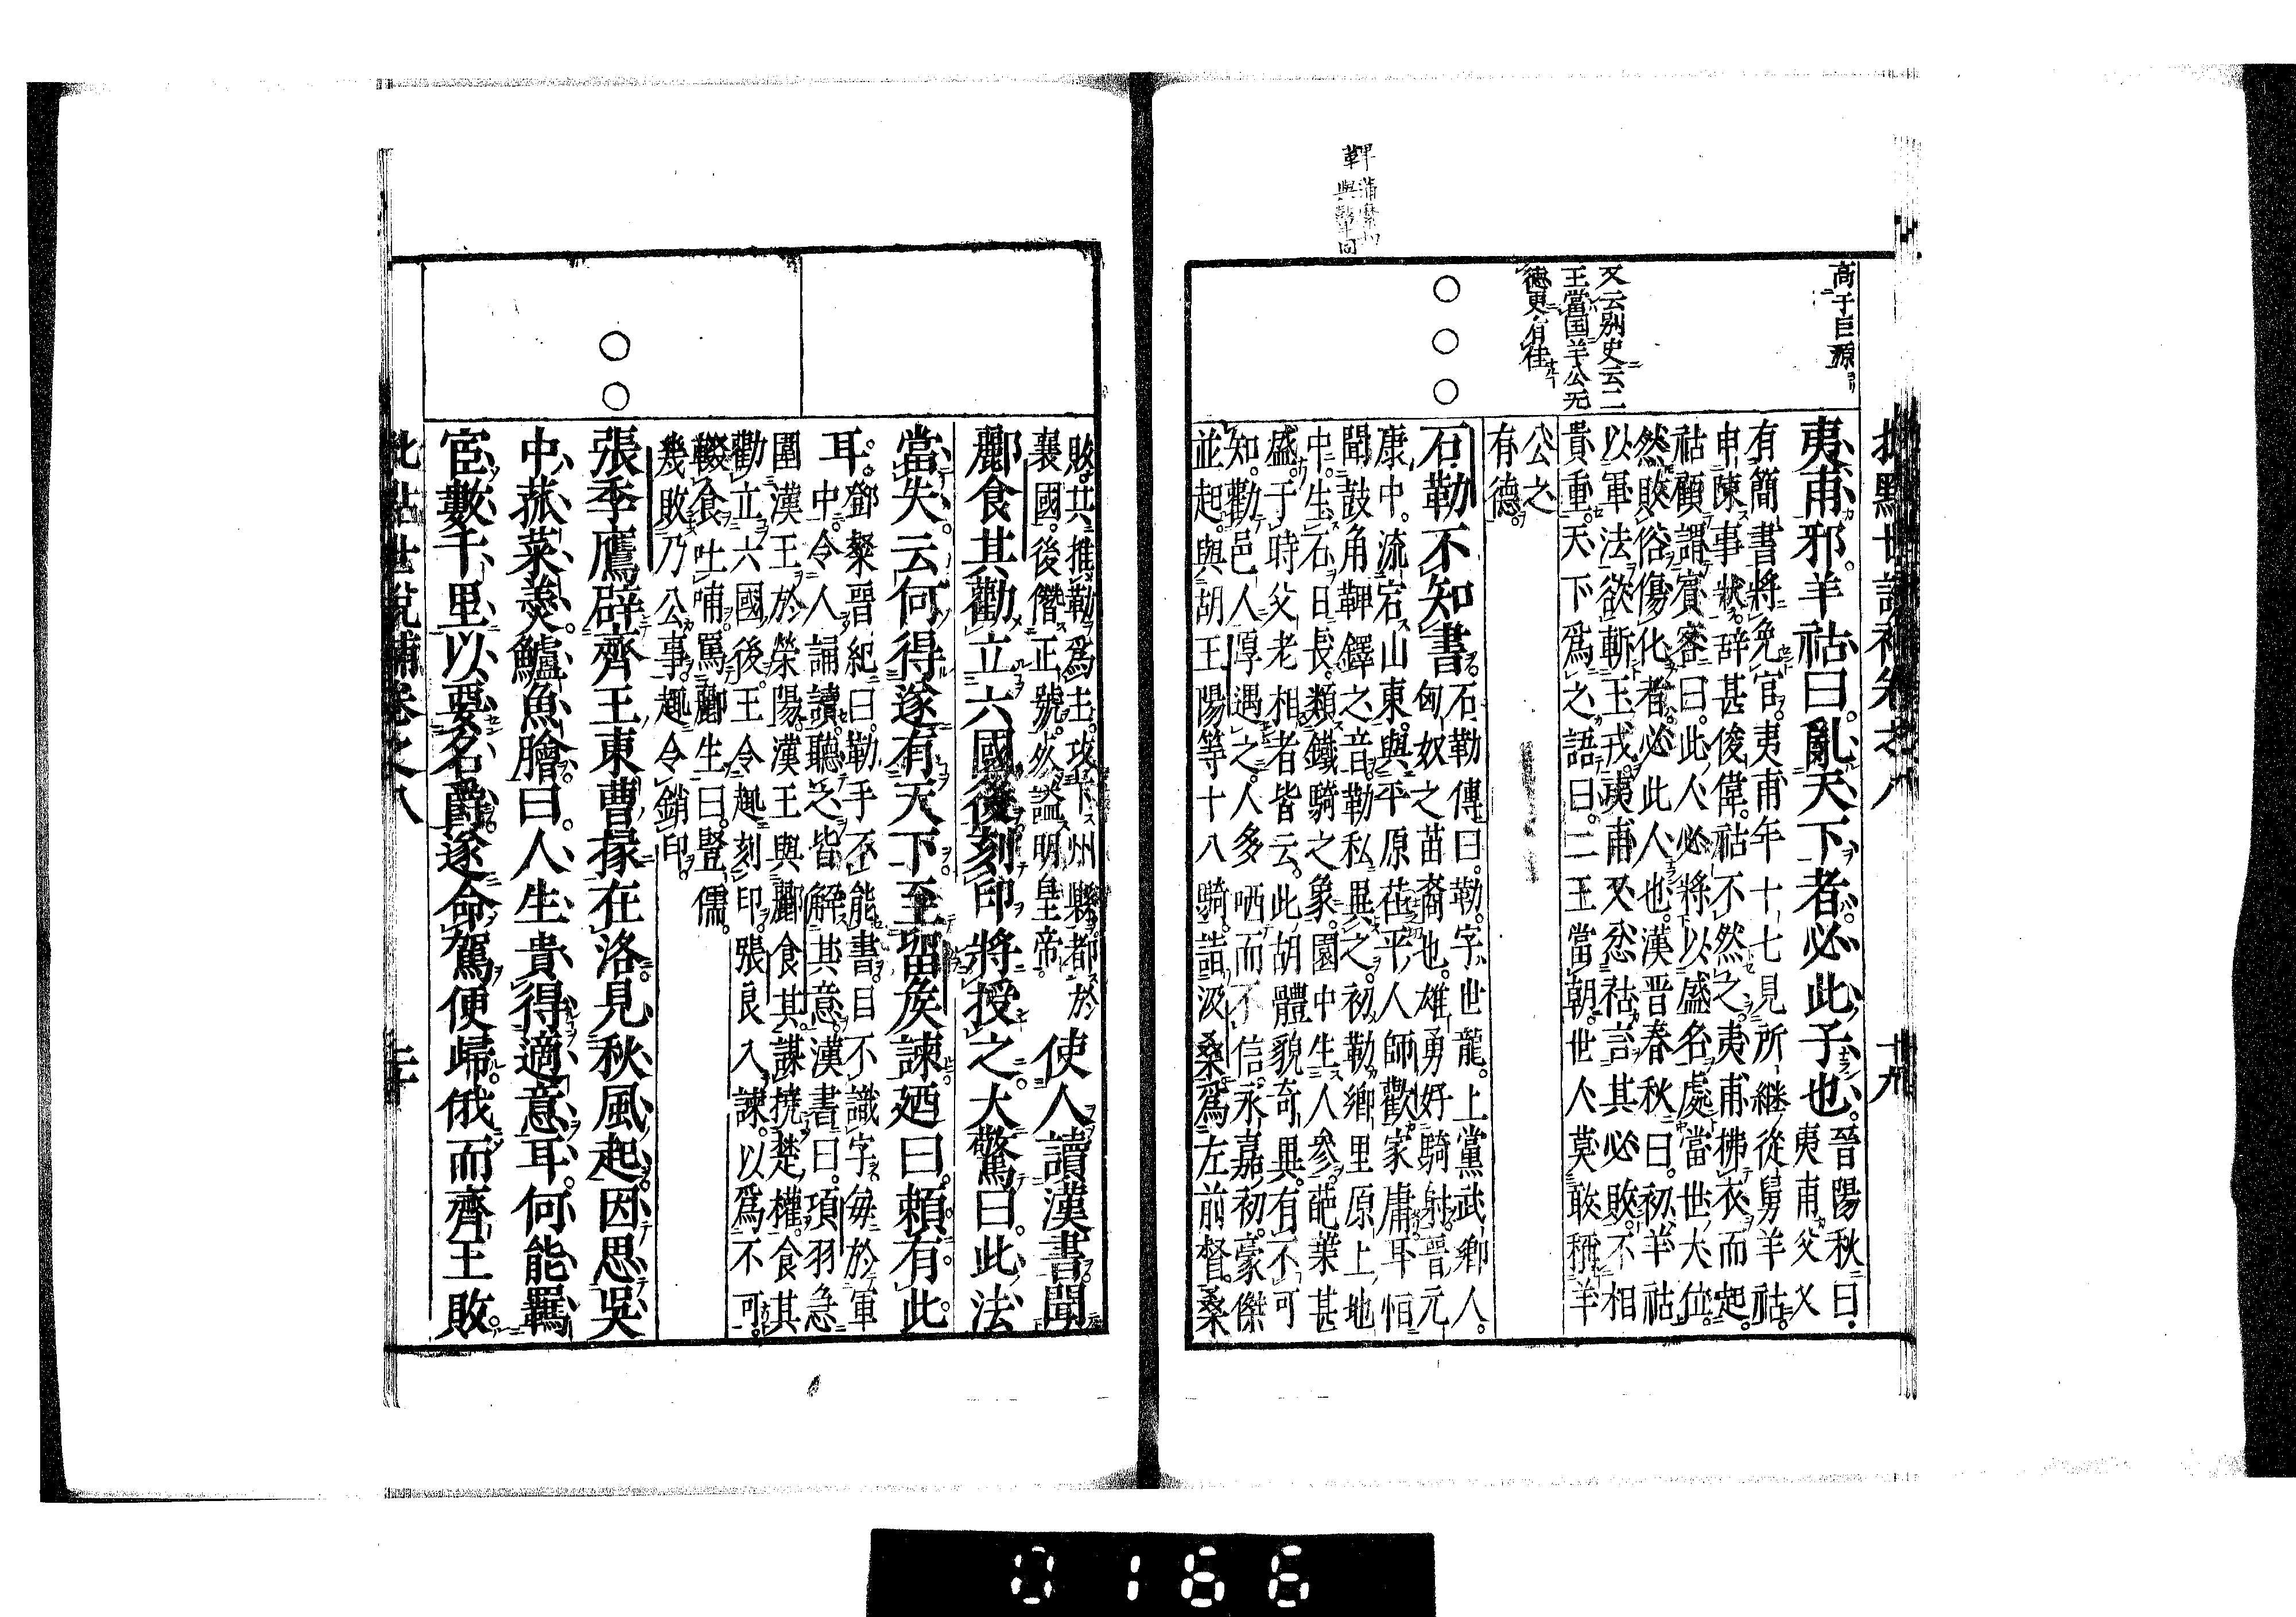 批點世說補卷之八
十九
高于巨源
夷甫邪羊祜曰亂天下者必此子也晉陽秋曰
夷甫父乂
有簡書將免官夷甫年十七見所繼從舅羊祜
申陳事狀辞甚俊偉祜不然之夷甫拂衣而起
祜顧謂賓客曰此人必將以盛名處當世大位
然敗俗傷化者必此人也漢晉春秋曰初羊祜
以軍法欲斬王戎夷甫又忿祜言其必敗不相
貴重天下為之語曰二王當朝世人莫敢稱羊
公之
有德
又云别史云二
王當国羊公无
德更有徍
石勒不知書石勒傳曰勒字世龍上黨武鄉人
匈奴之苗裔也雄勇好騎射晉元
康中流宕山東與平原茌平人師歡家庸耳恒
聞鼓角鞞鐸之音勒私異之初勒鄉里原上地
中生石日長類鐵騎之象園中生人參葩葉甚
盛于時父老相者皆云此胡體貌奇異有不可
知勸邑人厚遇之人多哂而不信永嘉初豪傑
並起與胡王陽等十八騎詣汲桑為左前督桑
○○○
敗共推勒為主攻下州縣都於
襄國後僭正號然謚明皇帝
使人讀漢書聞
酈食其勸立六國後刻印將授之大驚曰此法
當失云何得遂有天下至留矦諫廼曰頼有此
耳鄧粲晉紀曰勒手不能書目不識字每於軍
中令人誦讀聽之皆解其意漢書曰項羽急
圍漢王於滎陽漢王與酈食其謀撓楚權食其
勸立六國後王令趣刻印張良入諫以為不可
輟食吐哺罵酈生曰豎儒
幾敗乃公事趣令銷印
○○
張季鷹辟齊王東曹掾在洛見秋風起因思吳
中菰菜羹鱸魚膾曰人生貴得適意耳何能羈
宦數千里以要名爵遂命駕便歸俄而齊王敗
批點世說補卷之八
0166